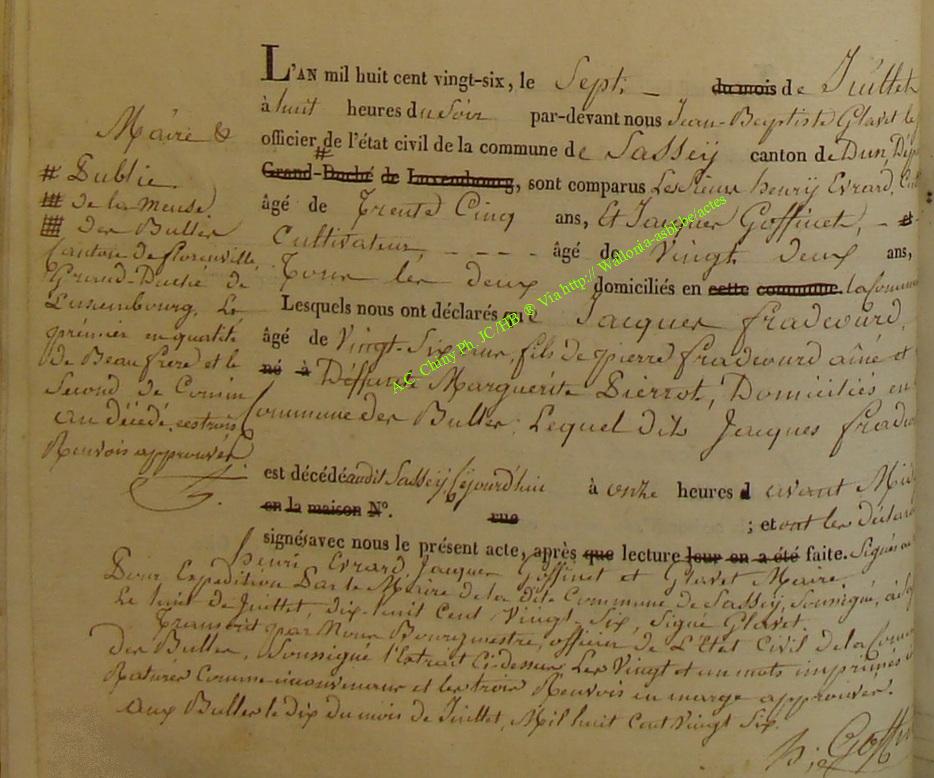 L'AN mil huit cent vingt-six, le Sept. du mois de Juillet
à huit heures du Soir par-devant nous Jean-Baptiste Glavet
Maire &
officier de l'état civil de la commune de Sassey canton de Dun, Dép
# Grand-Duché de Luxembourg, sont comparus Les Sieurs henry Evrard, Cult
âgé de Trente Cinq ans, Et Jacques Goffinet, #
Cultivateur âgé de Vingt deux ans,
Tous les deux domiciliés en cette commune. la Commu
Lesquels nous ont déclarés que Jacques fradcourd,
âgé de Vingt-Six ans, fils de pierre fradcourd aîné et
né à Deffunte Marguerite Pierrot, Domiciliés en
Commune des Bulles; Lequel dits Jacques fradco
est décédé audit Sassey, cejourd'hui à onze heures d avant Mid
en la maison N°. rue ; et ont les déclar
signés avec nous le présent acte, après que lecture leur en a été faite. Signés
henri Evrard, Jacques Goffinet et Glavet Maire.
# Publie.
## de la Meuse.
### des Bulles
Canton de florenville
Grand-Duché de
Luxembourg. Le
premier en qualité
de Beau frere et le
Second de Cousin
au décédé. ces trois
Renvois approuvés
Pour Expedition Par le Maire de la dite Commune de Sassey, Soussigné,
Le huit de Juillet dix-huit Cent Vingt-Six, Signé Glavet.
Transcrit par Nous Bourgmestre, officier de L'Etat Civil de la Comm
des Bulles, Soussigné l'Extrait Ci-dessus. Les Vingt et un mots imprimés
Raturés Comme inconvenans et les trois Renvois en marge approuvés.
aux Bulles le dix du mois de Juillet Mil huit Cent Vingt Six.
h; Goffin
A.C Chiny Ph. JC/HB ® Via http:// Wallonia-asbl.be/actes